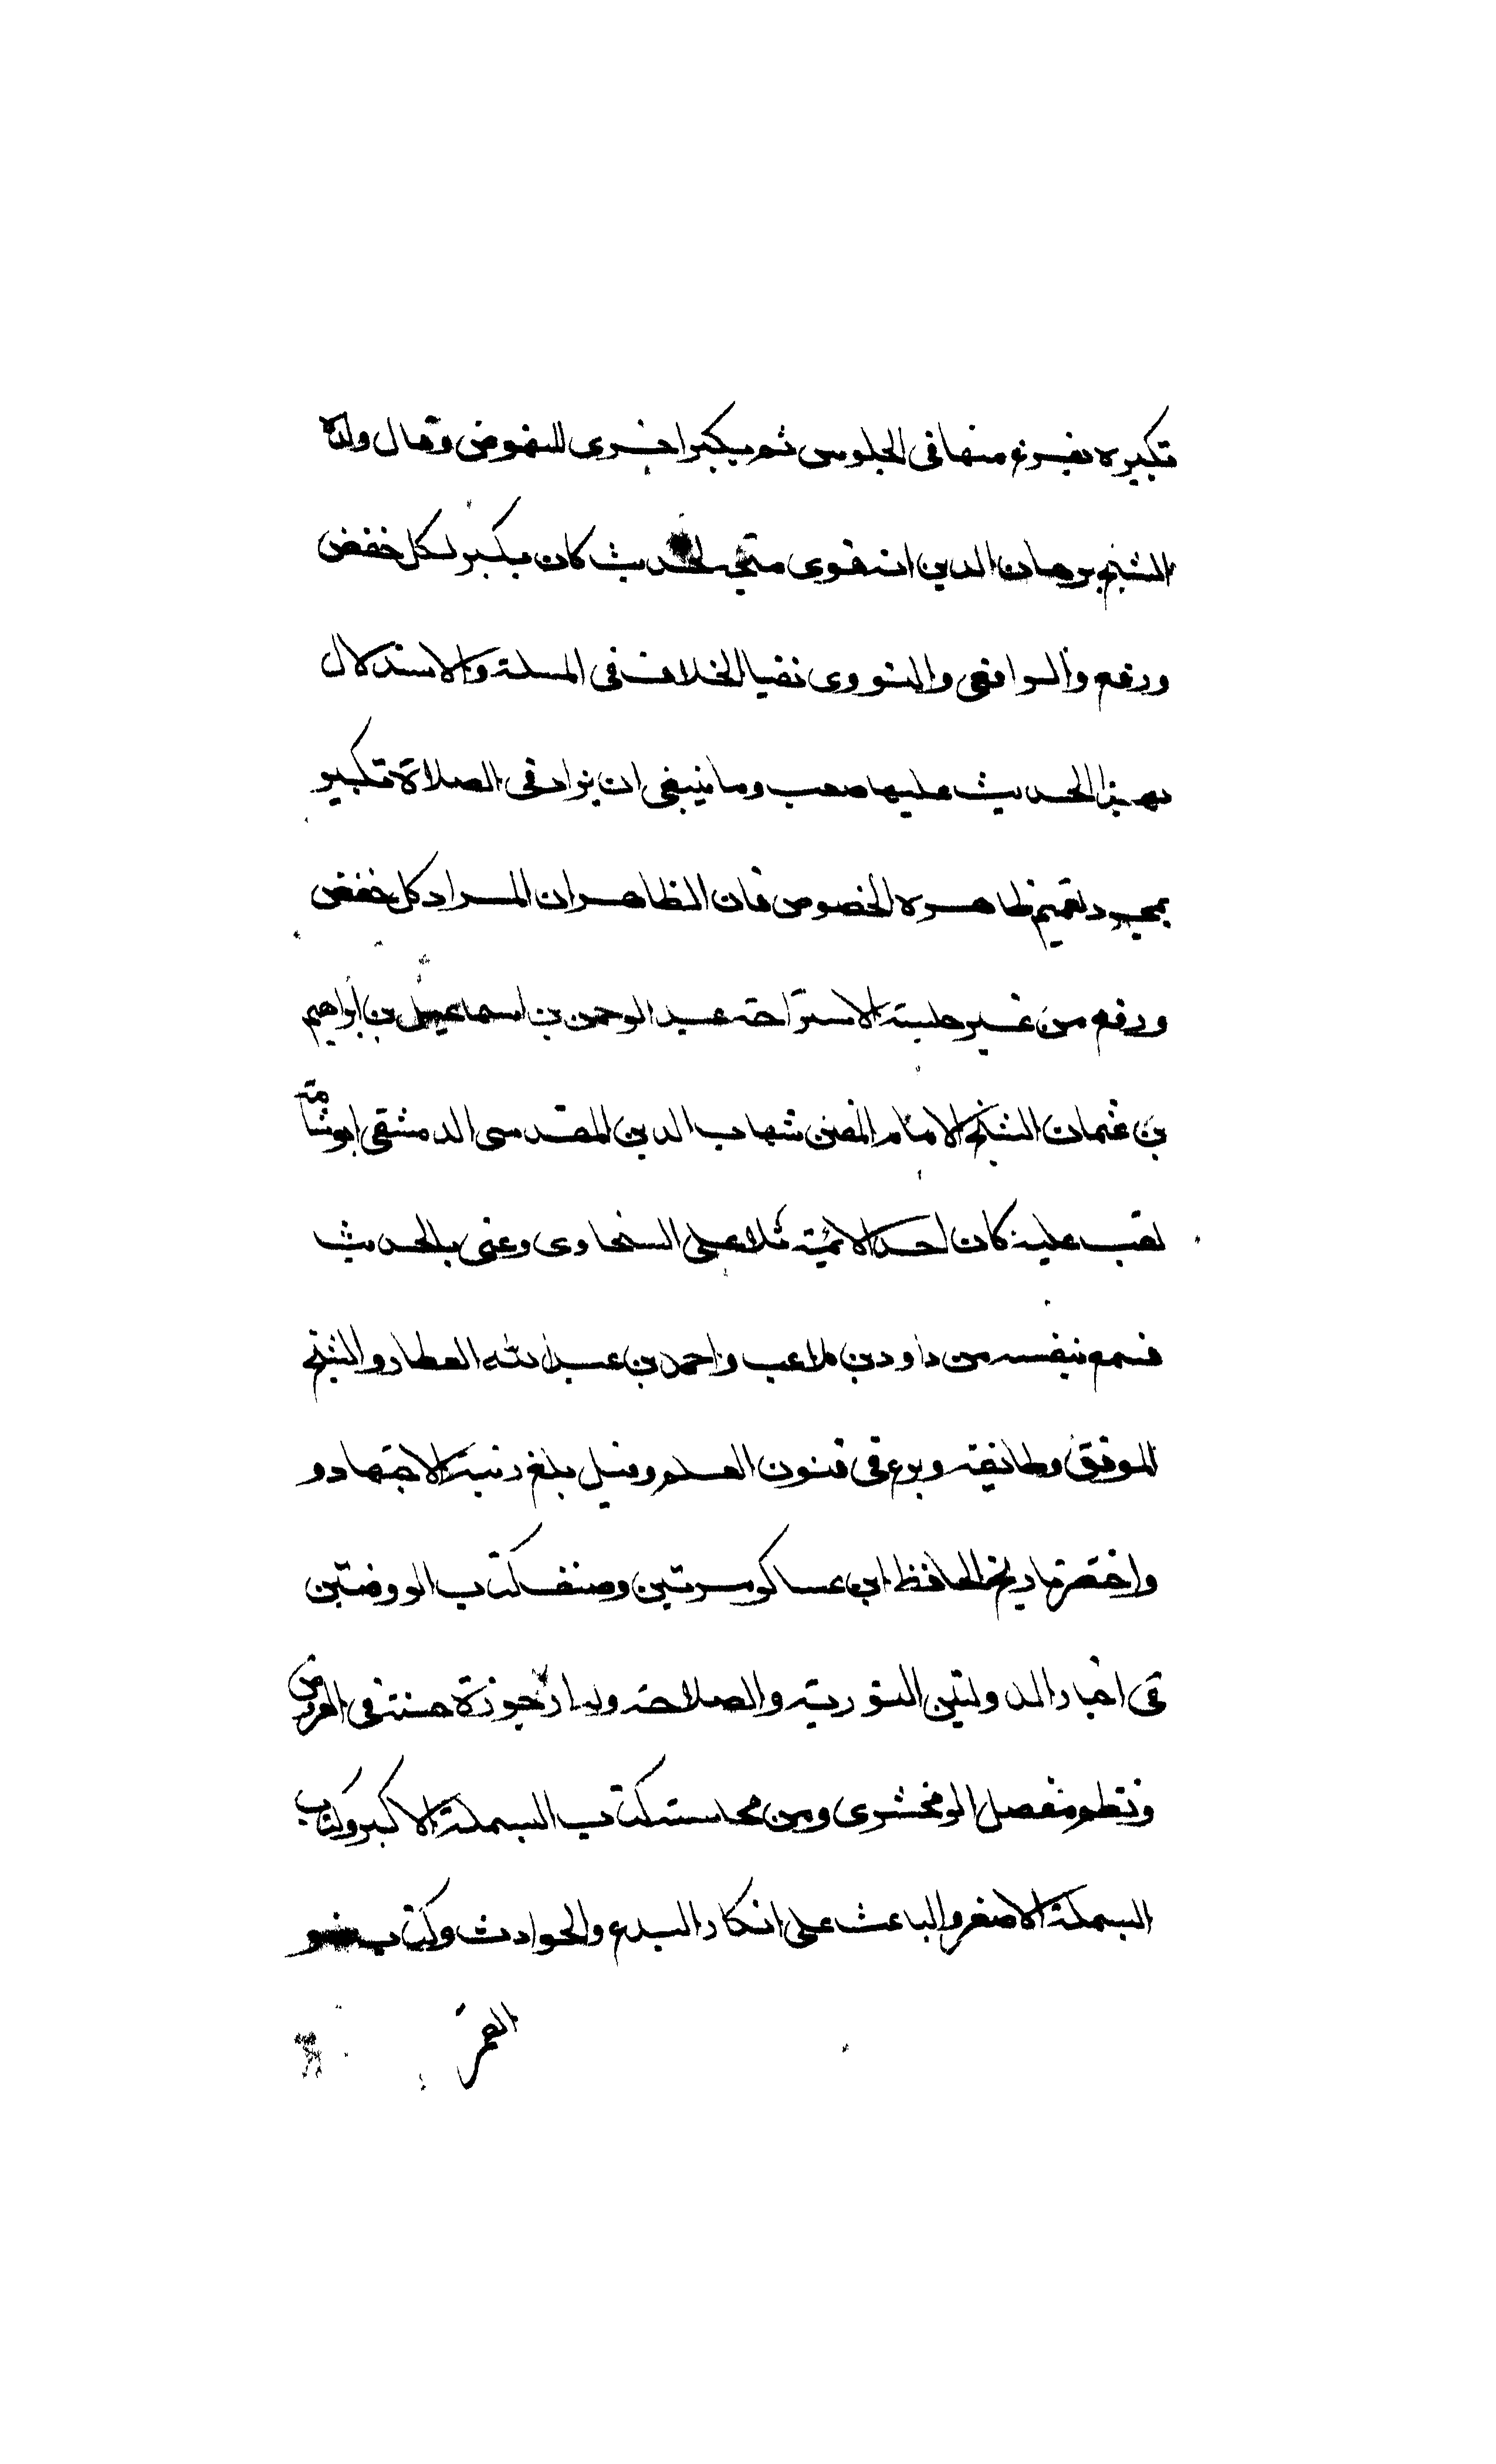 تكبيره يفرغ منها في الجلوس ثم يكبر اخرى للنهوض وقال ولده
الشيخ برهان الدين انه قوى متجه لحديث كان يكبر لكل خفض
ورفع والرافعي والنووي نفيا الخلاف في المسلة والاستدلال
بهذا الحديث عليها صعب وما ينبغي ان يزاد في الصلاة تكبير
بمجرد تعميم ظاهره الخصوص فان الظاهر ان المراد كل خفض
ورفع من غير جلسة الاستراحة عبد الرحمن بن اسماعيل بن ابراهيم
بن عثمان الشيخ الامام المفنن شهاب الدين المقدسي الدمشقي ابو شامة
لقب عليه كان احد الائمة تلا على السخاوى وعنى بالحديث
فسمع بنفسه من داود بن ملاعب واحمد بن عبد الله العطار والشيخ
الموفق وطائفة وبرع في فنون العلم وقيل بلغ رتبة الاجتهاد و
واختصر تاريخ الحافظ ابن عساكر مرتين وصنف كتاب الروضتين
في اخبار الدولتين النورية والصلاحة وله ارجوزة حسنة في العروض
ونظم مفصل الزمخشرى ومن محاسنه كتاب البسملة الاكبر وكتاب
البسملة الاصغر والباعث على انكار البدع والحوادث وكتاب ضو
القمر